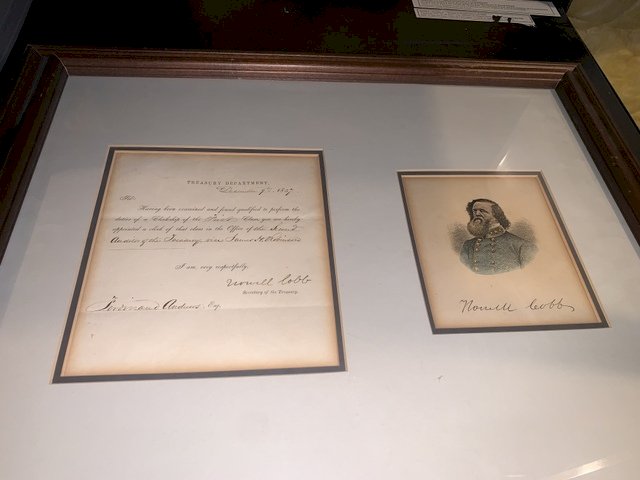 TREASURY DEPARTMENT,
December 9th 1857
Sir:
Having been examined and found qualified to perform the
duties of a Clerkship of the First Class, you are hereby
appointed a clerk of that class in the Office of the Second
Auditor of the Treasury, vice James H. Robinson
I am, very respectfully,
Howell Cobb
Secretary of the Treasury.
Ferdinand Andrews, Esq.
Howell Cobb